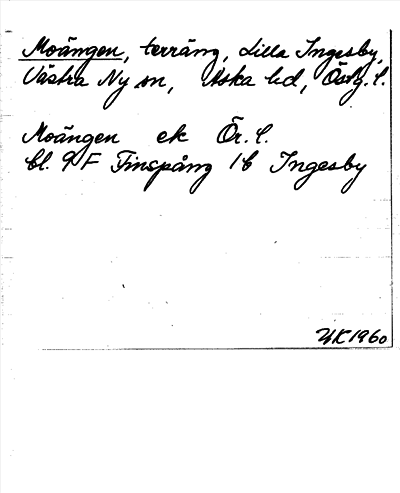 Moängen, terräng, Lilla Ingesby,
Västra Ny sn, Aska hd, Östg. l.
Moängen ek Ör. l.
bl. 9 F Finspång 1 b Ingesby
1960